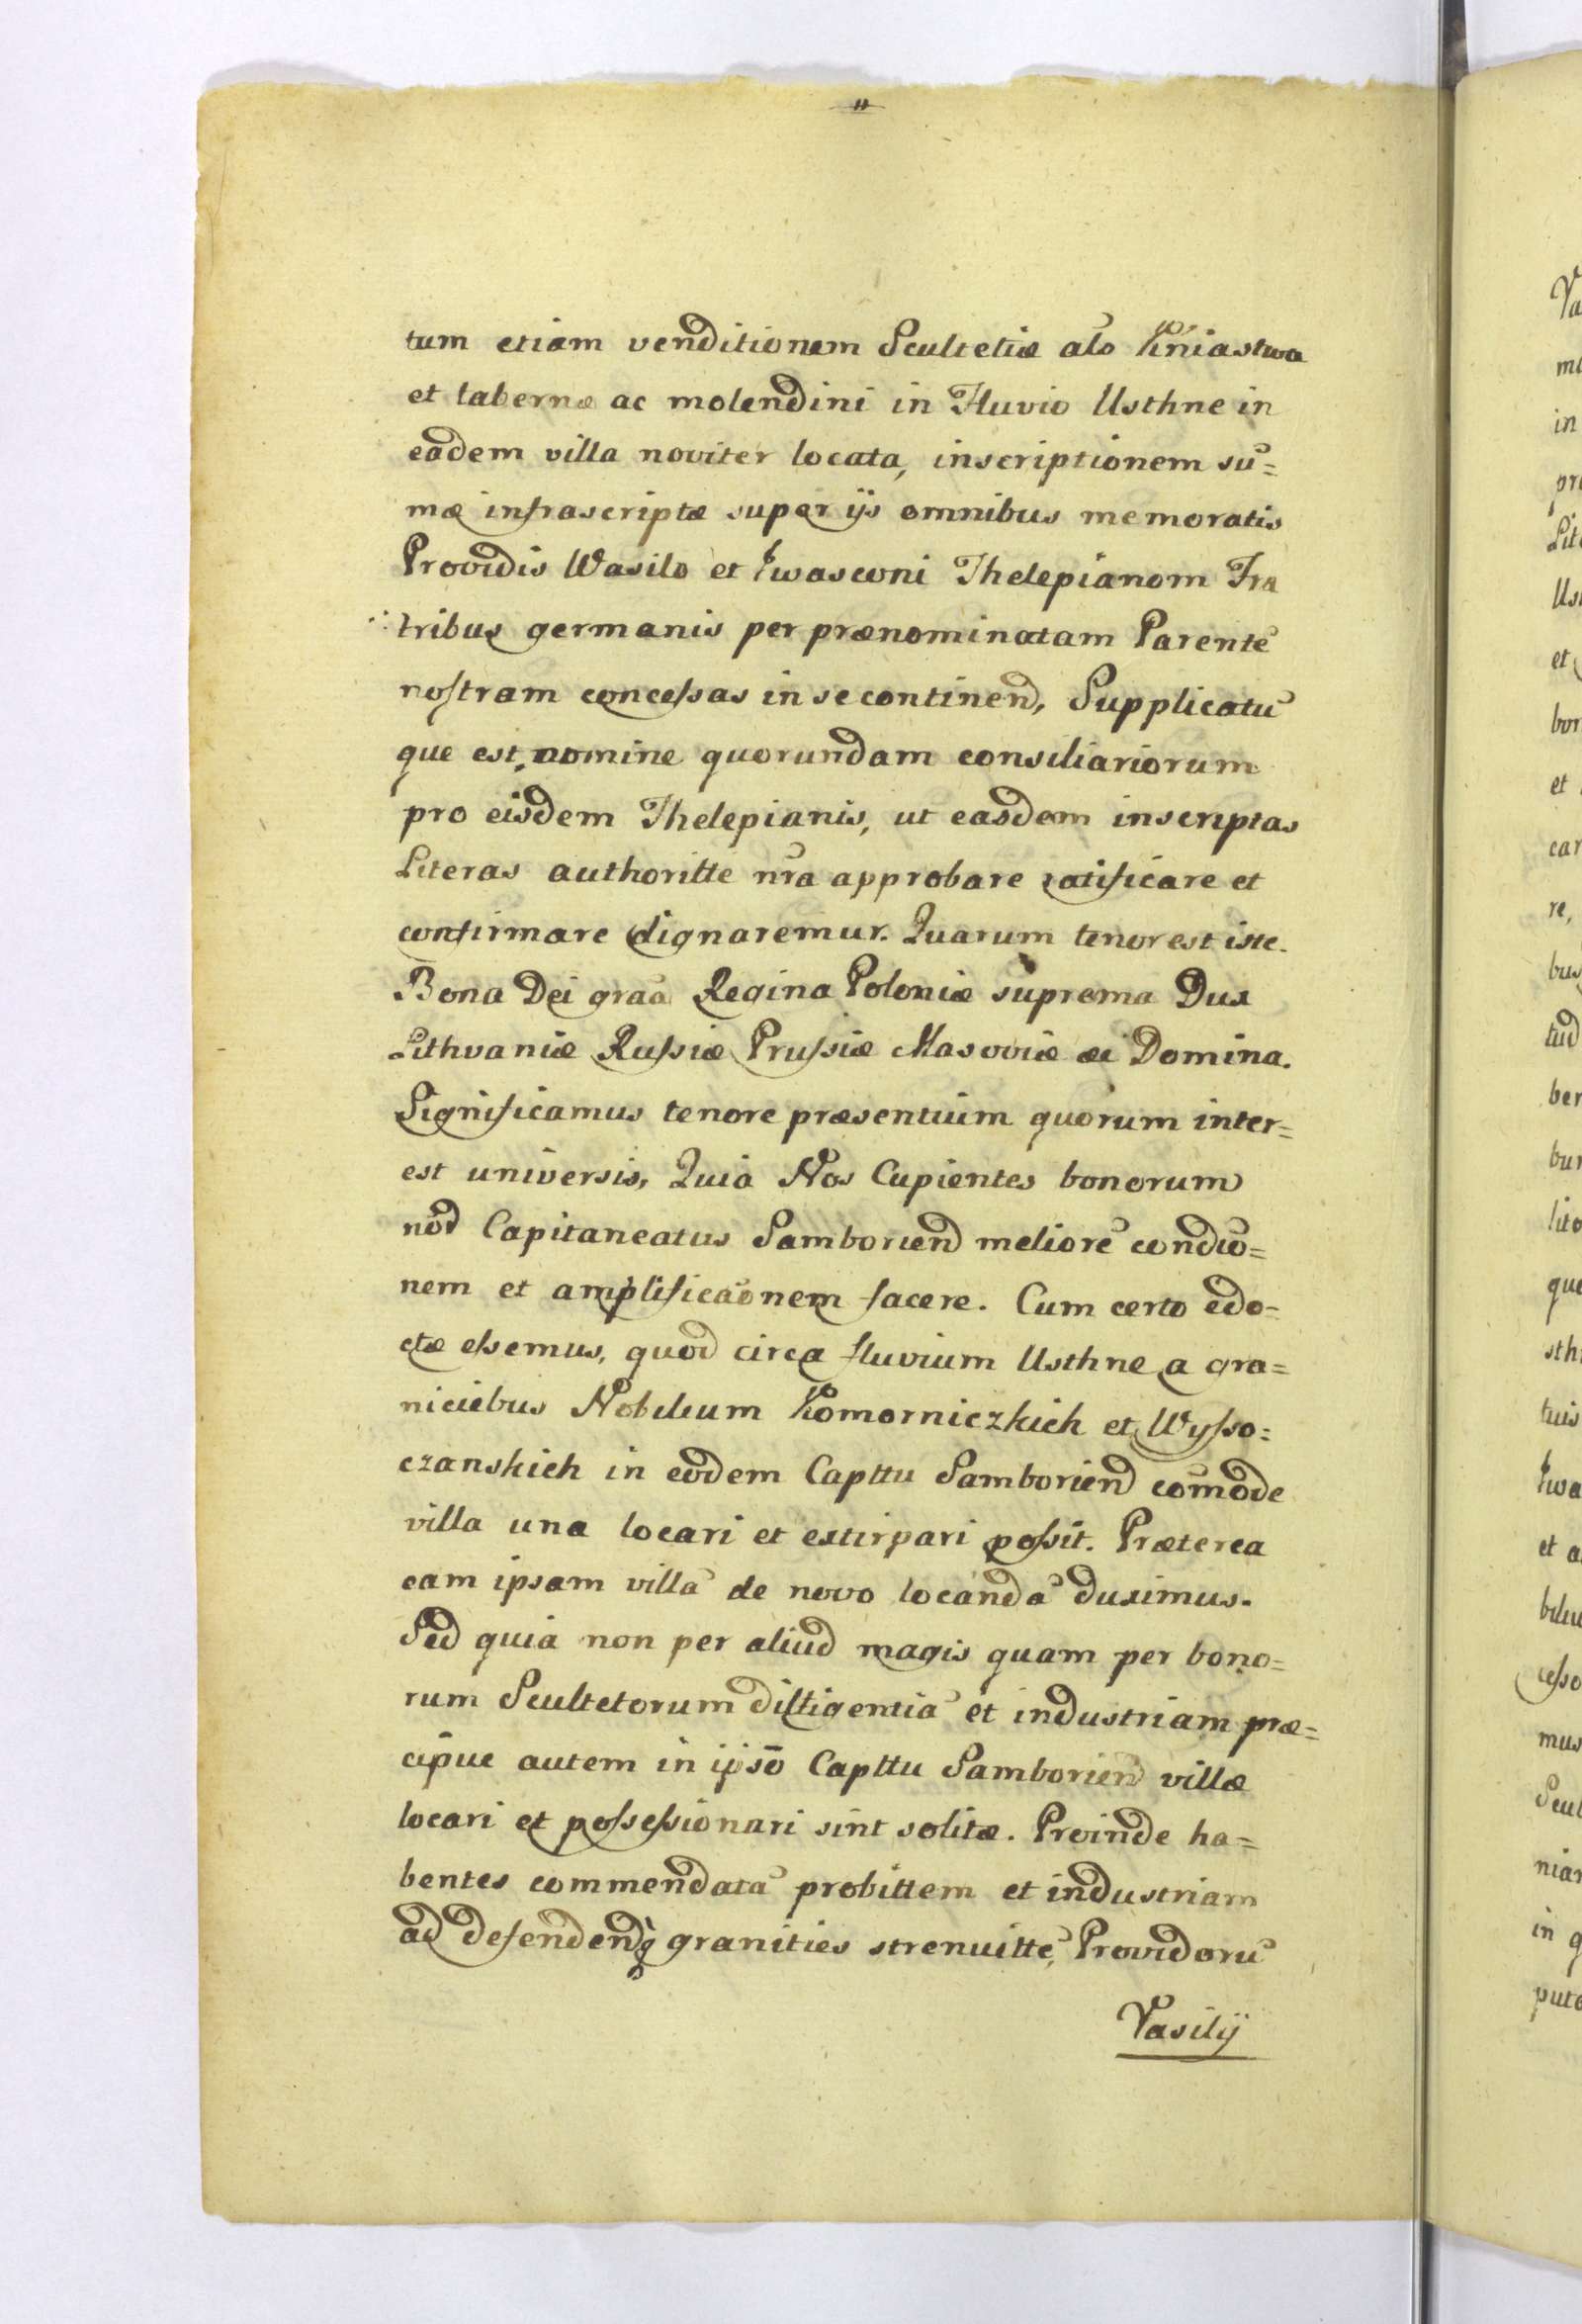 tum etiam venditionem Scultetiæ als Kniastwa
et tabernæ ac molendini in Fluvio Usthne in
eadem villa noviter locata, inscriptionem su=
mæ infrascriptæ super ijs omnibus memoratis
Providis Wasilo et Iwasconi Thelepianom Fra
tribus germanis per prænominatam Parentē
nostram concessas in se continen̄d, Supplicatū
que est nomine quorundam consiliariorum
pro eisdem Thelepianis, ut easdem inscriptas
Literas authoritte nr̄a approbare ratificare et
confirmare dignaremur. Quarum tenor est iste.
Bona Dei gr̄aa Regina Poloniæ suprema Dux
Lithvaniæ Russiæ Prussiæ Masoviæ æc Domina.
Significamus tenore præsentium quorum inter=
est universis, Quia Nos Cupientes bonorum
nōr Capitaneatus Samborien̄d meliorē condiō=
nem et amplificāonem facere. Cum certo edo=
ctæ essemus, quod circa fluvium Usthne a gra=
niciebus Nobilium Komorniczkich et Wysso=
czanskich in eodem Capttu Samborien̄d com̄ode
villa una locari et extirpari possit. Præterea
eam ipsam villā de novo locandā duximus.
Sed quia non per aliud magis quam per bono=
rum Scultetorum diligentiā et industriam præ=
cipue autem in ipsō Capttu Samborien̄d villæ
locari et possessionari sint solitæ. Proinde ha=
bentes commendatā probittem et industriam
ad defendend granities strenuittē, Providorū
Vasilÿ
Va
in
et
bor
et
car
re,
bus
tud
ber
lito
que
sth
tuis
Iwa
et a
mus
Scul
niar
in q